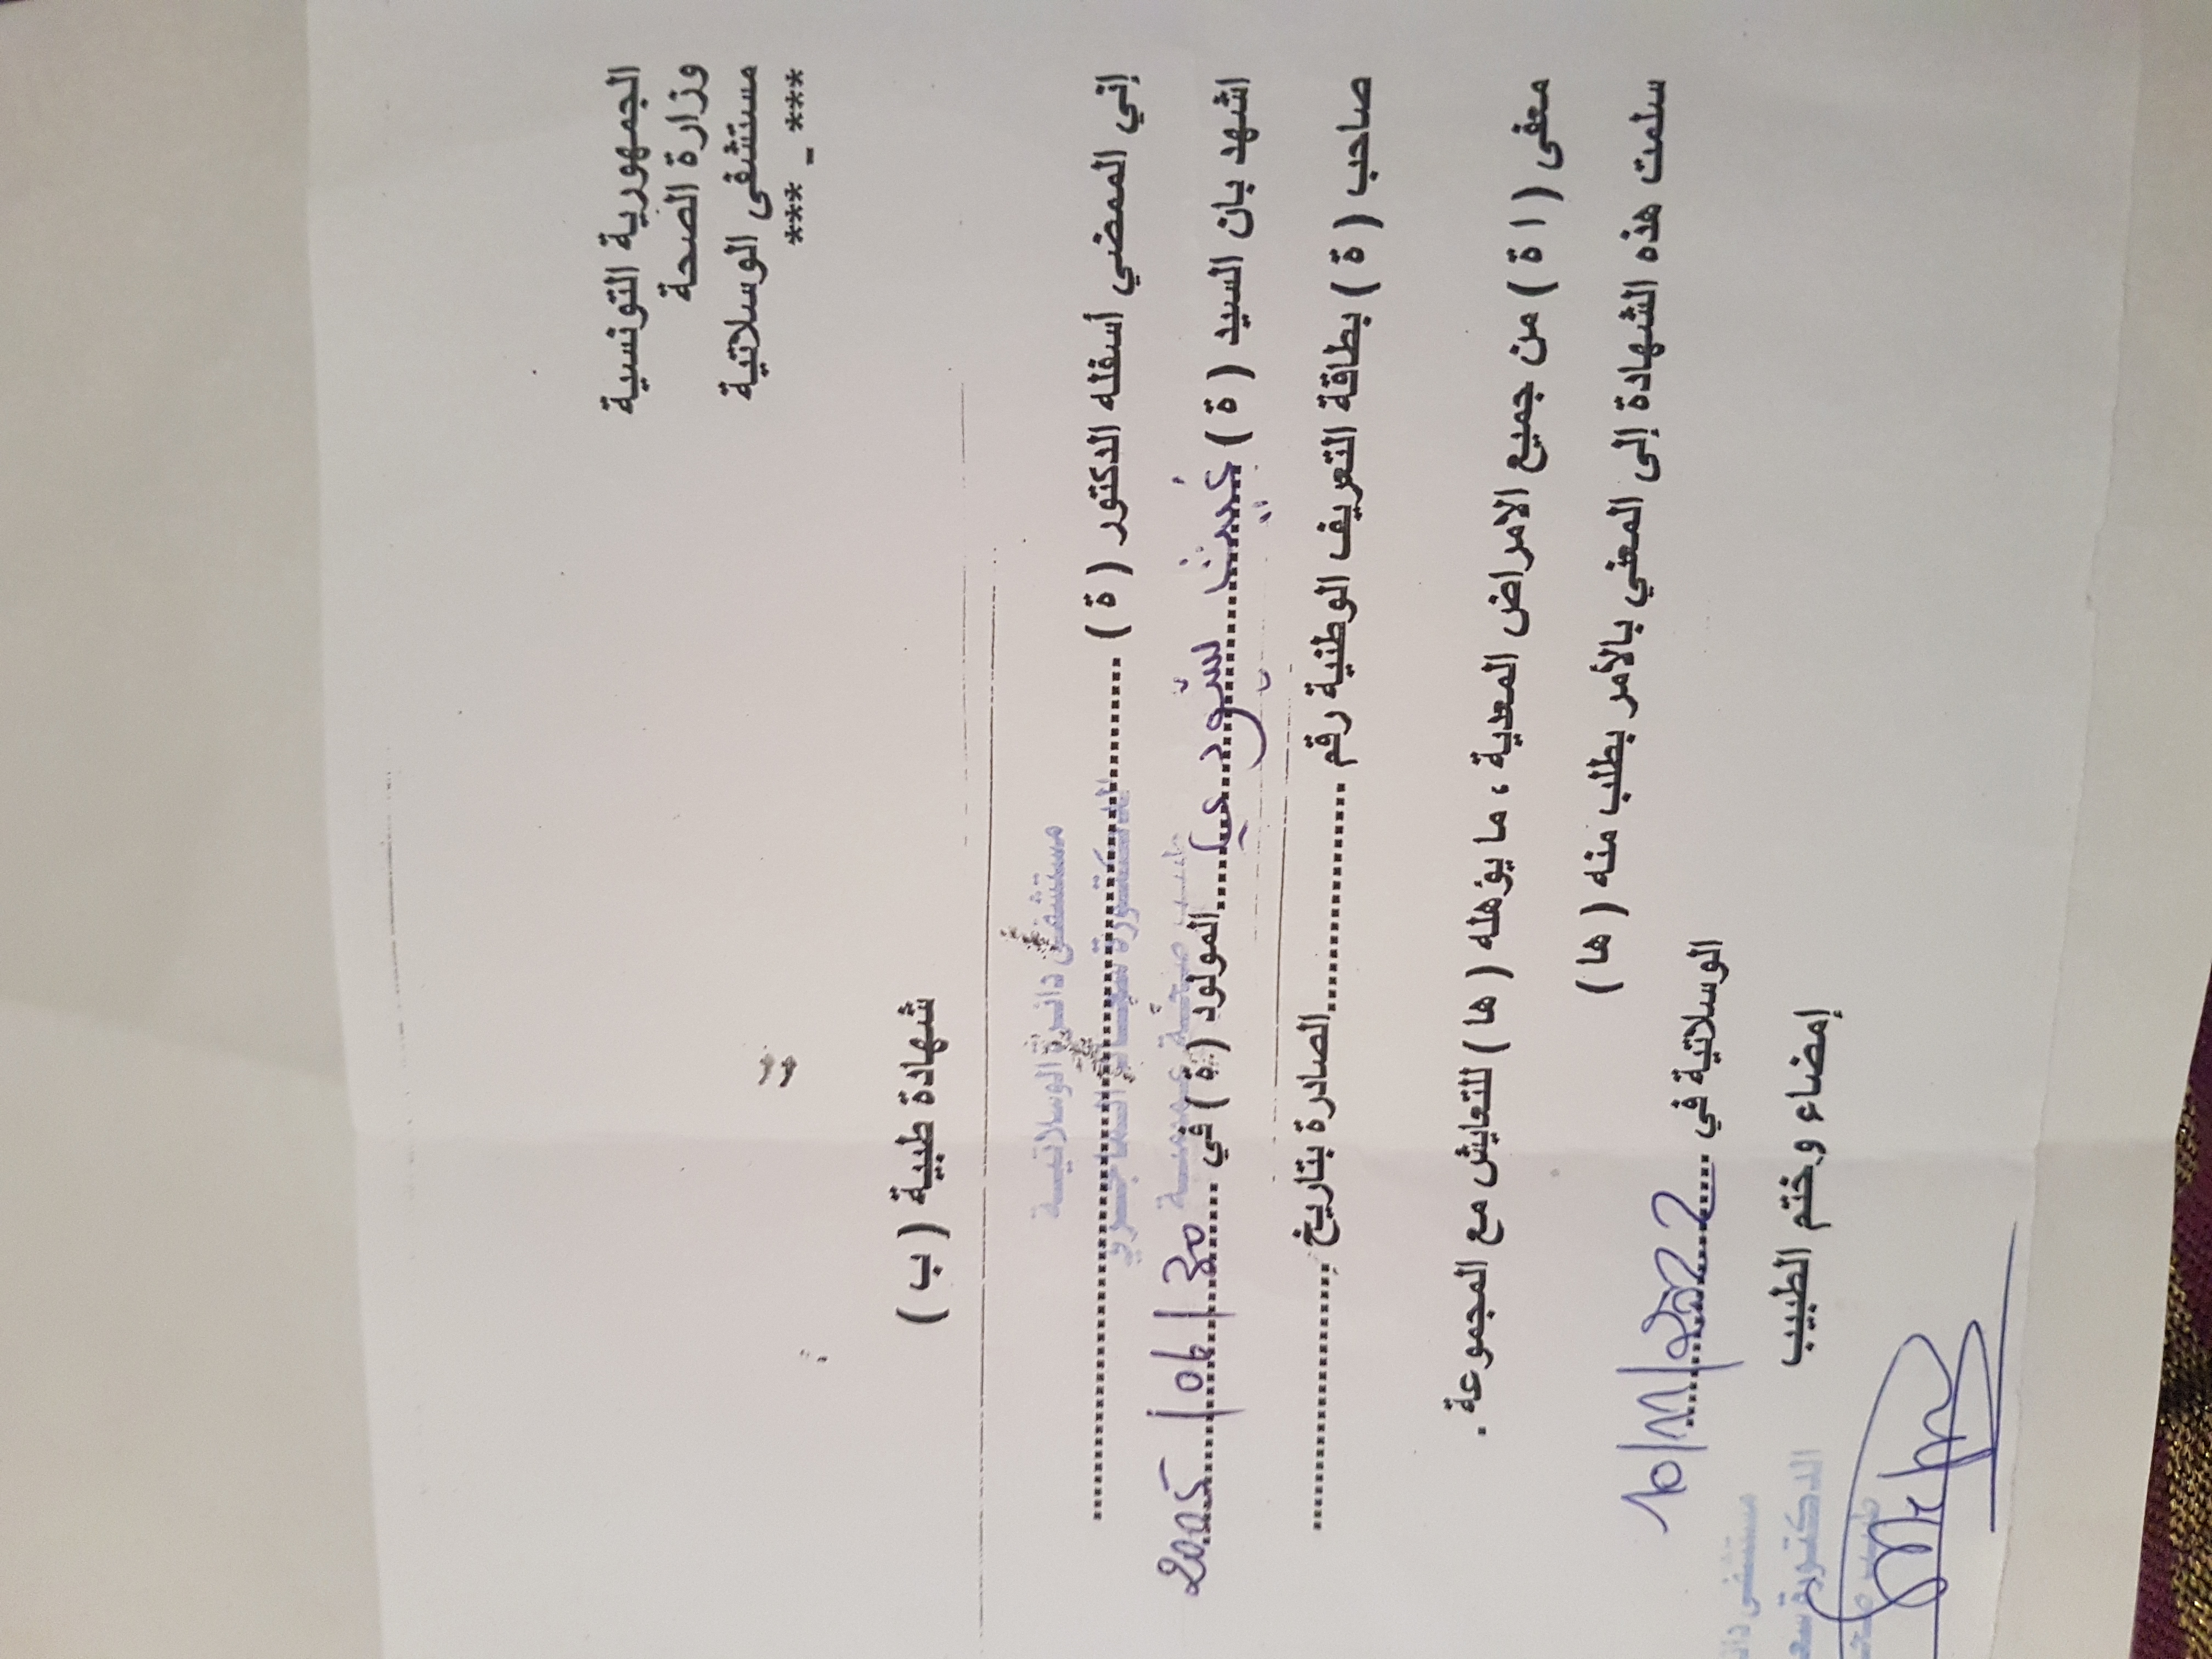 الجمهورية التونسية
وزارة الصحة
مستشفى الوسلاتية
*** _ ***
شهادة طبية ( ب )
مستشفى دائرة الوسلاتية
إني الممضي أسفله الدكتور ( ة ) ........ الدكتورة
اشهد بان السيد ( ة ) ........ المولود ( ة ) في 30/06/2005
صاحب ( ة ) بطاقة التعريف الوطنية رقم ........ الصادرة بتاريخ ........
معفى ( ا ة ) من جميع الامراض المعدية ، ما يؤهله ( ها ) للتعايش مع المجموعة .
سلمت هذه الشهادة إلى المعني بالأمر بطلب منه ( ها )
الوسلاتية في 10/11/2022
إمضاء و ختم الطبيب
مستشفى
الدكتورة